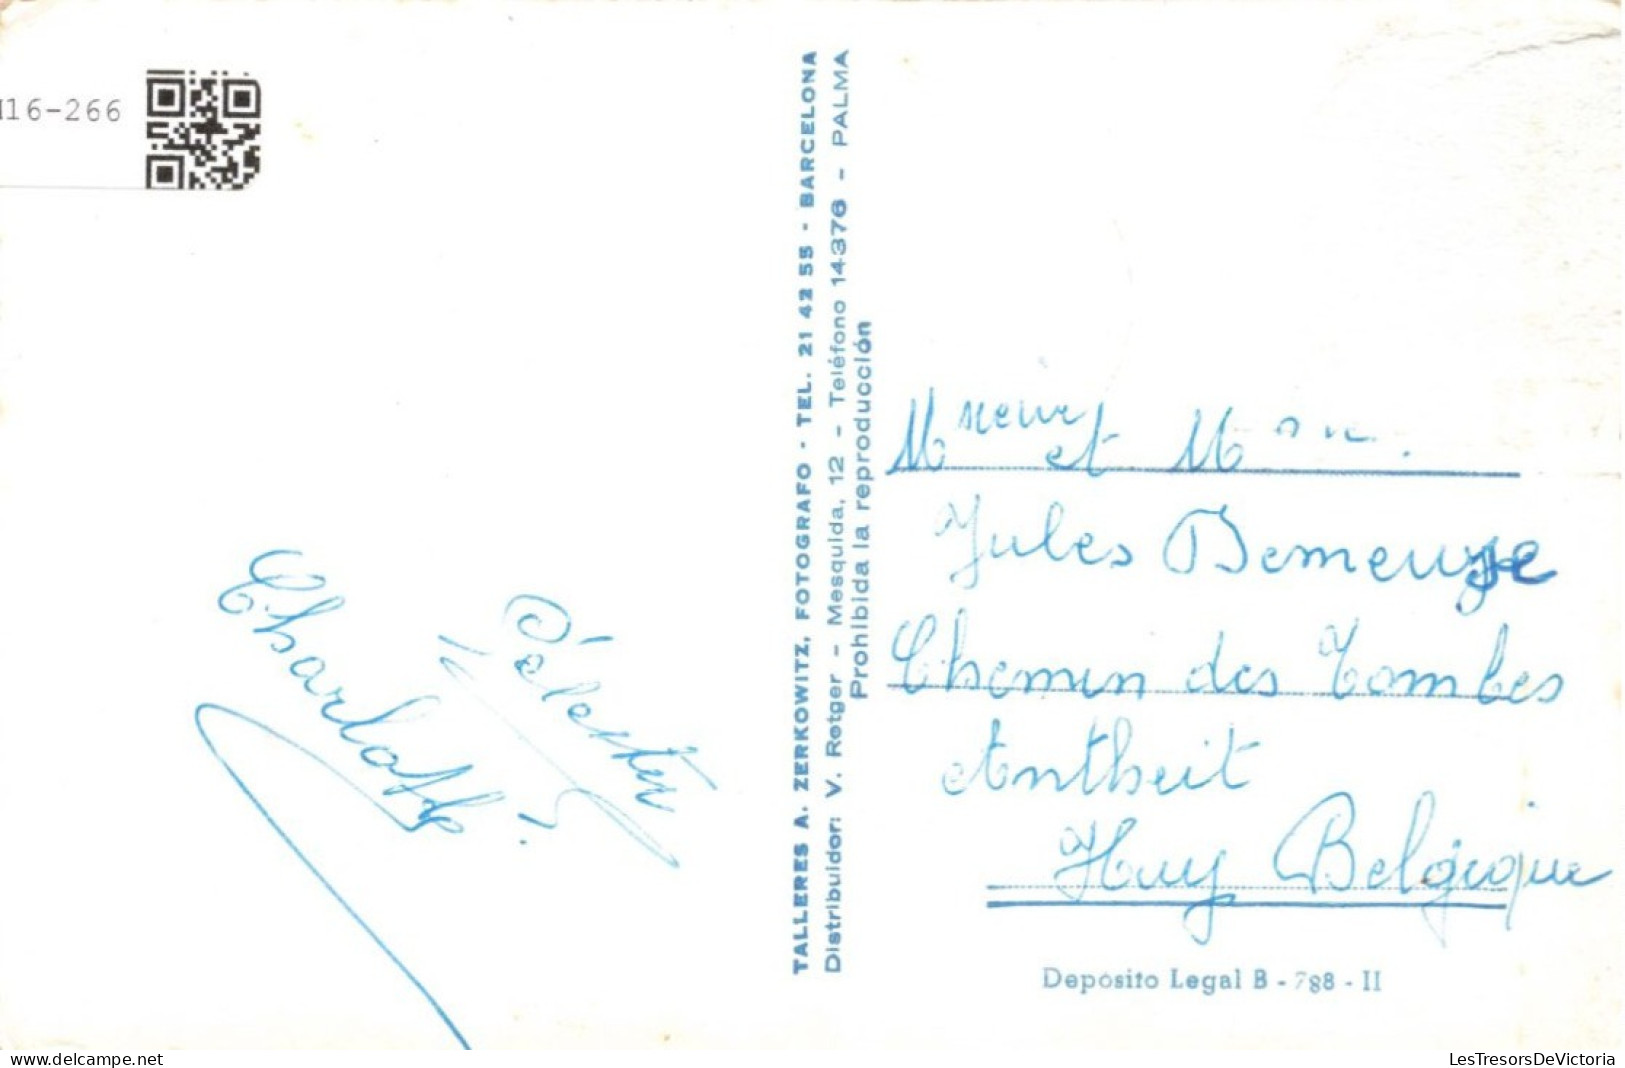 16-266
Charlotte
Célestin
TALLERES A. ZERKOWITZ, FOTOGRAFO - TEL. 21 42 55 - BARCELONA
Distribuidor: V. Rotger - Mesquida, 12 - Teléfono 14376 - PALMA
Prohibida la reproducción
Msieur et M
Jules Demeuse
Chemin des Tombes
Antheit
Huy Belgique
Deposito Legal B - 788 - II
delcampe.net
LesTresorsDeVictoria